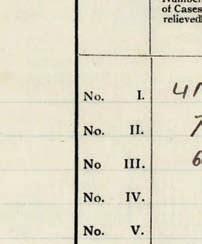 of Cases
relieved
No. I.
No. II.
No III. 6
No. IV.
No. V.